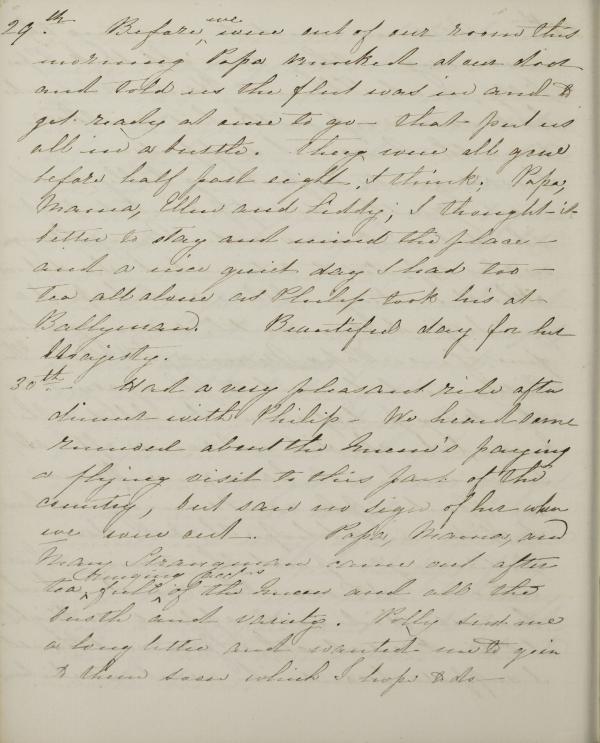 29.th Before we were out of our room this
morning Papa knocked at our door
and told us the fleet was in and to
get ready at once to go - that put us
all in a bustle. They were all gone
before half past eight, I think. Papa,
Mama, Ellen and Liddy; I thought it
better to stay and mind the place -
and a nice quiet day I had too -
Tea all alone as Philip took his at
Ballyman. Beautiful day for her
Majesty.
30th - Had a very pleasant ride after
dinner with Philip - We heard some
rumour about the Queen's paying
a flying visit to this part of the
country, but saw no sign of her when
we were out. Papa, Mama, and
Mary Strangman came out after
tea, bringing full of the Queen and all the
bustle and variety. Polly sent me
a long letter and wanted me to join
them soon which I hope to do -